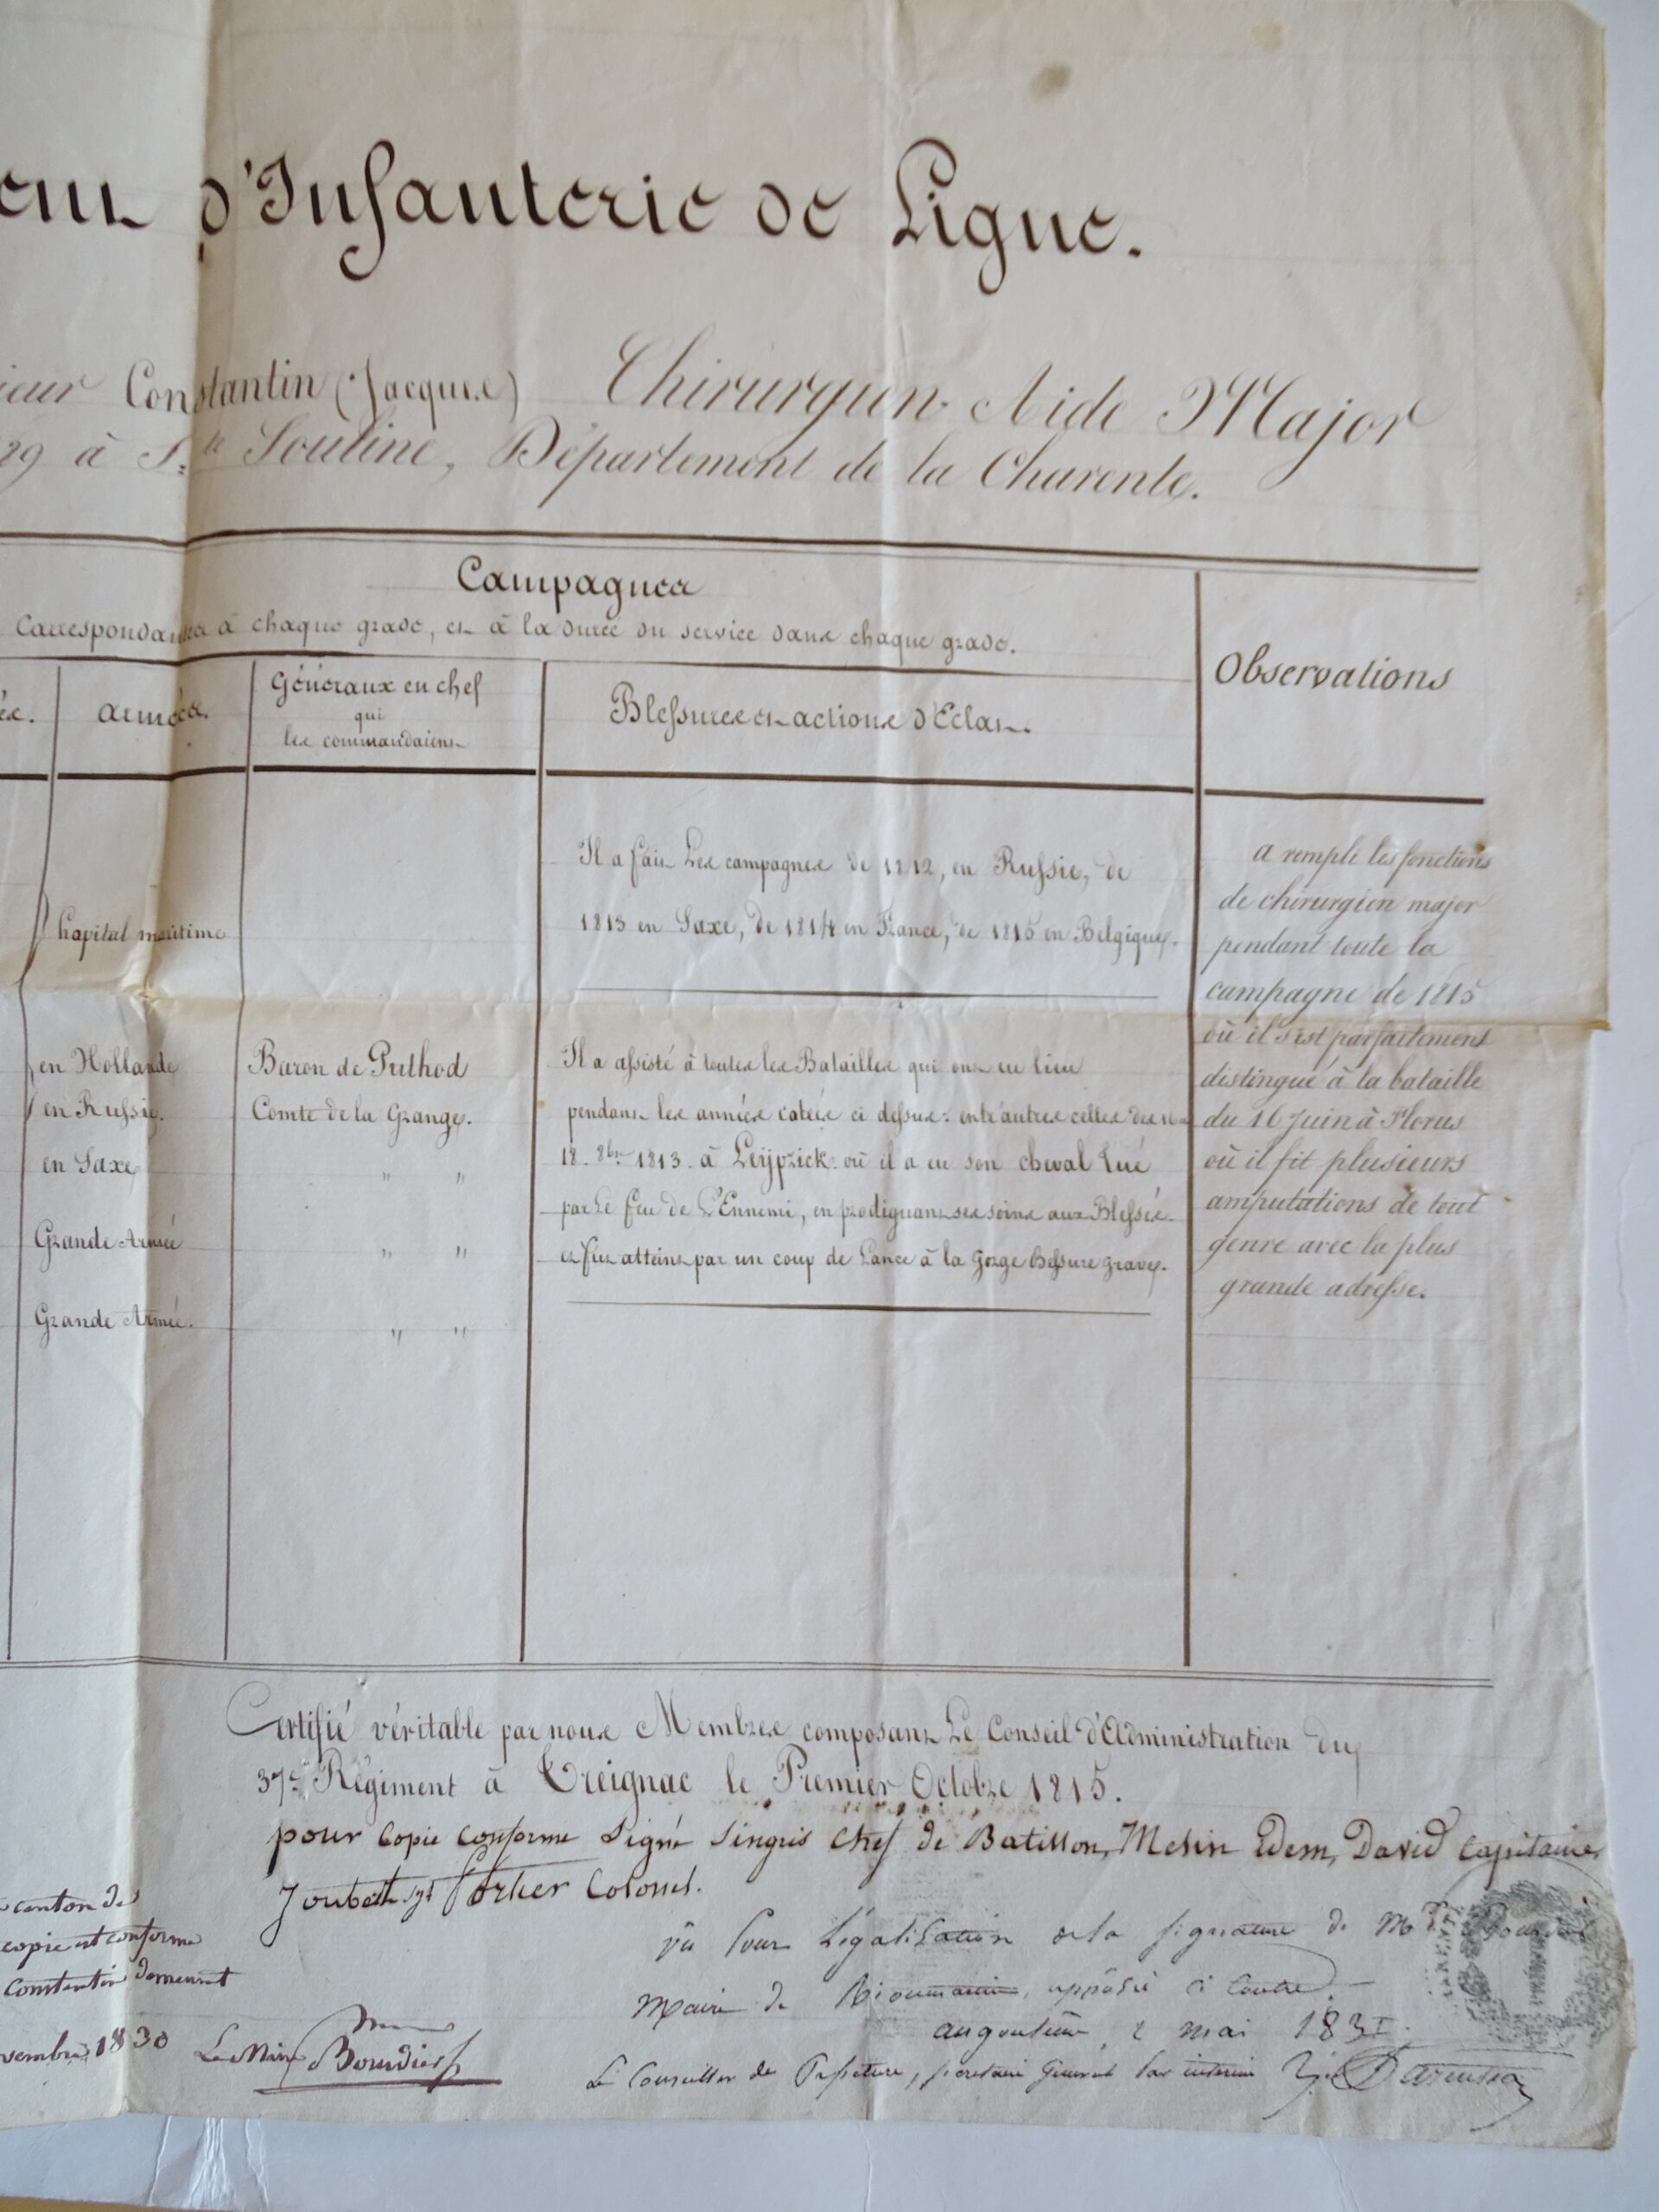 d'Infanterie de Ligne.
ieur Constantin (Jacques) Chirurgien Aide Major
29 à Ste Souline, Département de la Charente.
Campagnes
Correspondantes à chaque grade, et à la durée du service dans chaque grade.
armées.
Généraux en chef
qui
les commandaient
Blessures et actions d'Eclat.
Observations
hopital maritime
Il a fait Les campagnes de 1812, en Russie, de
1813 en Saxe, de 1814 en France, de 1815 en Belgique.
en Hollande
en Russie.
en Saxe
Grande Armée
Grande Armée.
Baron de Puthod
Comte de la Grange.
" "
" "
" "
Il a assisté à toutes les Batailles qui ont eu lieu
pendant les années cotées ci dessus: entr'autres celles des
18. 8bre 1813. à Leypzick où il a eu son cheval tué
par Le feu de L'Ennemi, en prodiguant ses soins aux Blessés
et fut atteint par un coup de Lance à la Gorge Blessure grave.
a rempli les fonctions
de chirurgien major
pendant toute la
campagne de 1815
où il s'est parfaitement
distingué à la bataille
du 16 Juin à Florus
où il fit plusieurs
amputations de tout
genre avec la plus
grande adresse.
Certifié véritable par nous Membres composant Le Conseil d'Administration du
37e Régiment à Treignac le Premier Octobre 1815.
pour Copie Conforme Signé Singris Chef de Batillon, Mesin Idem, David Capitaine,
Joubert Fortier Colonel.
canton de
copie est conforme
Constantin demeurant
vembre 1830 Le Maire Bourdier
vu pour Légalisation de la signature de Mr
Maire de apposée ci Contre.
angoulême, 2 mai 1831.
Le Conseiller de Préfecture, secrétaire Général par intérim